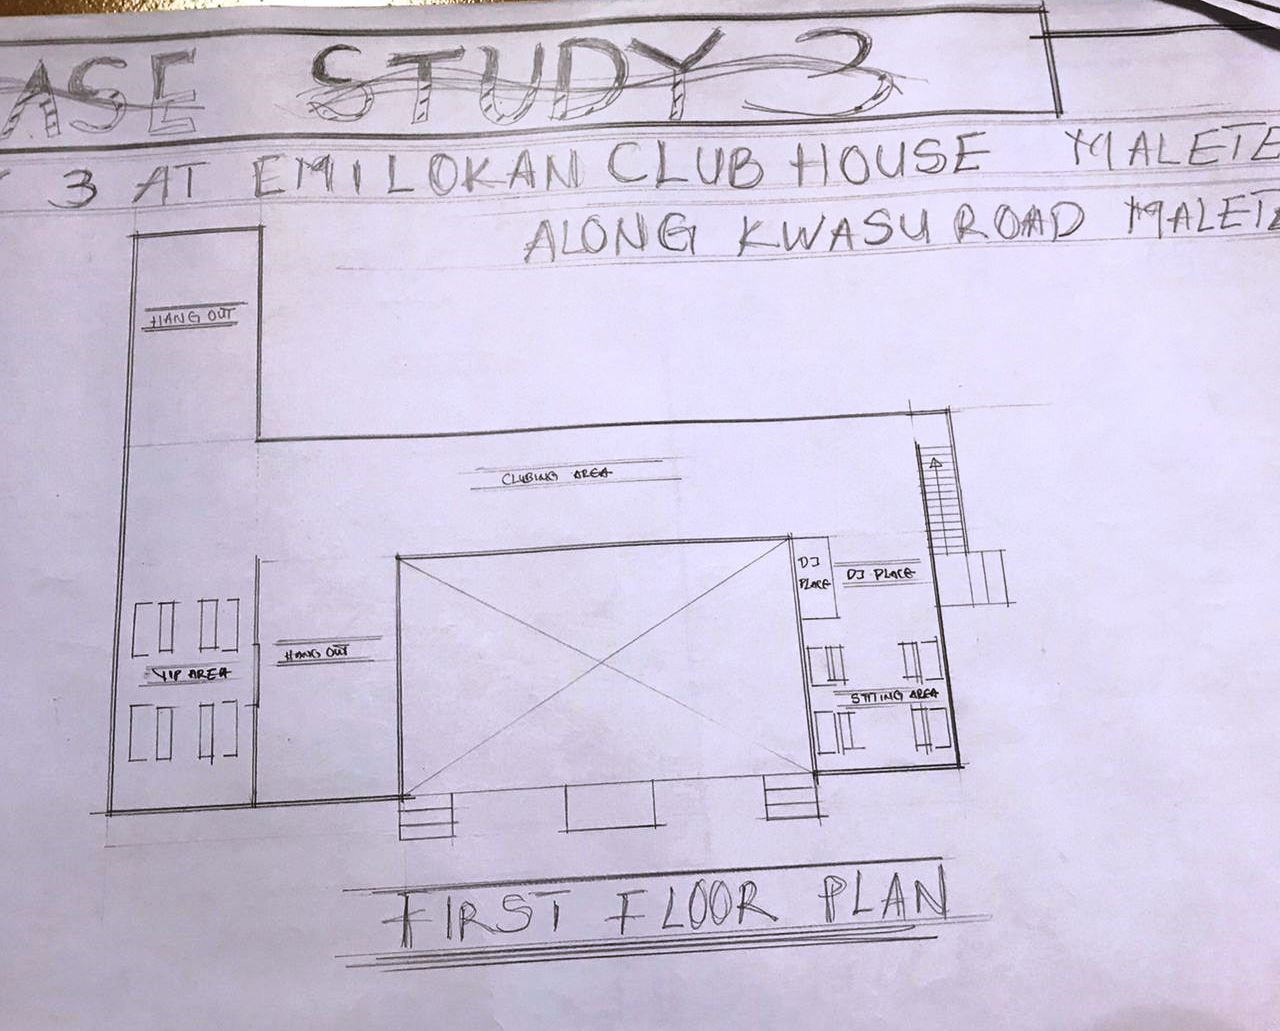 ASE STUDY 3
3 AT EMILOKAN CLUB HOUSE MALETE
ALONG KWASU ROAD MALETE
HANG OUT
CLUBING AREA
DJ
PLACE
DJ PLACE
HANG OUT
VIP AREA
SITTING AREA
FIRST FLOOR PLAN